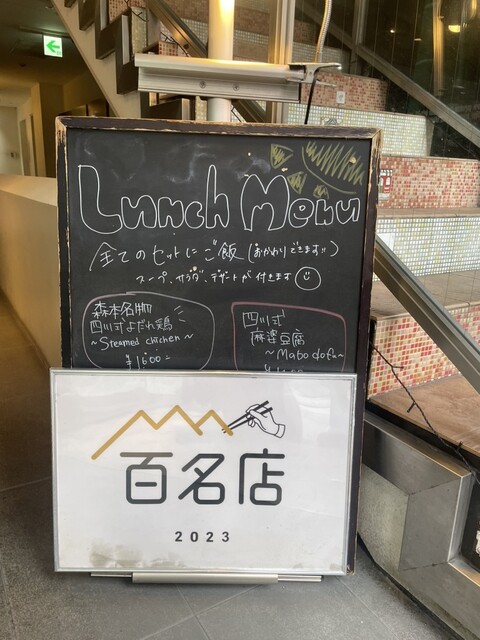 Lunch Menu
全てのセットにご飯(おかわりできます!!)
スープ、サラダ、デザートが付きます
森本名物
四川式よだれ鶏
~Steamed chicken~
¥1600-
四川式
麻婆豆腐
~Mabo dofu~
百名店
2023